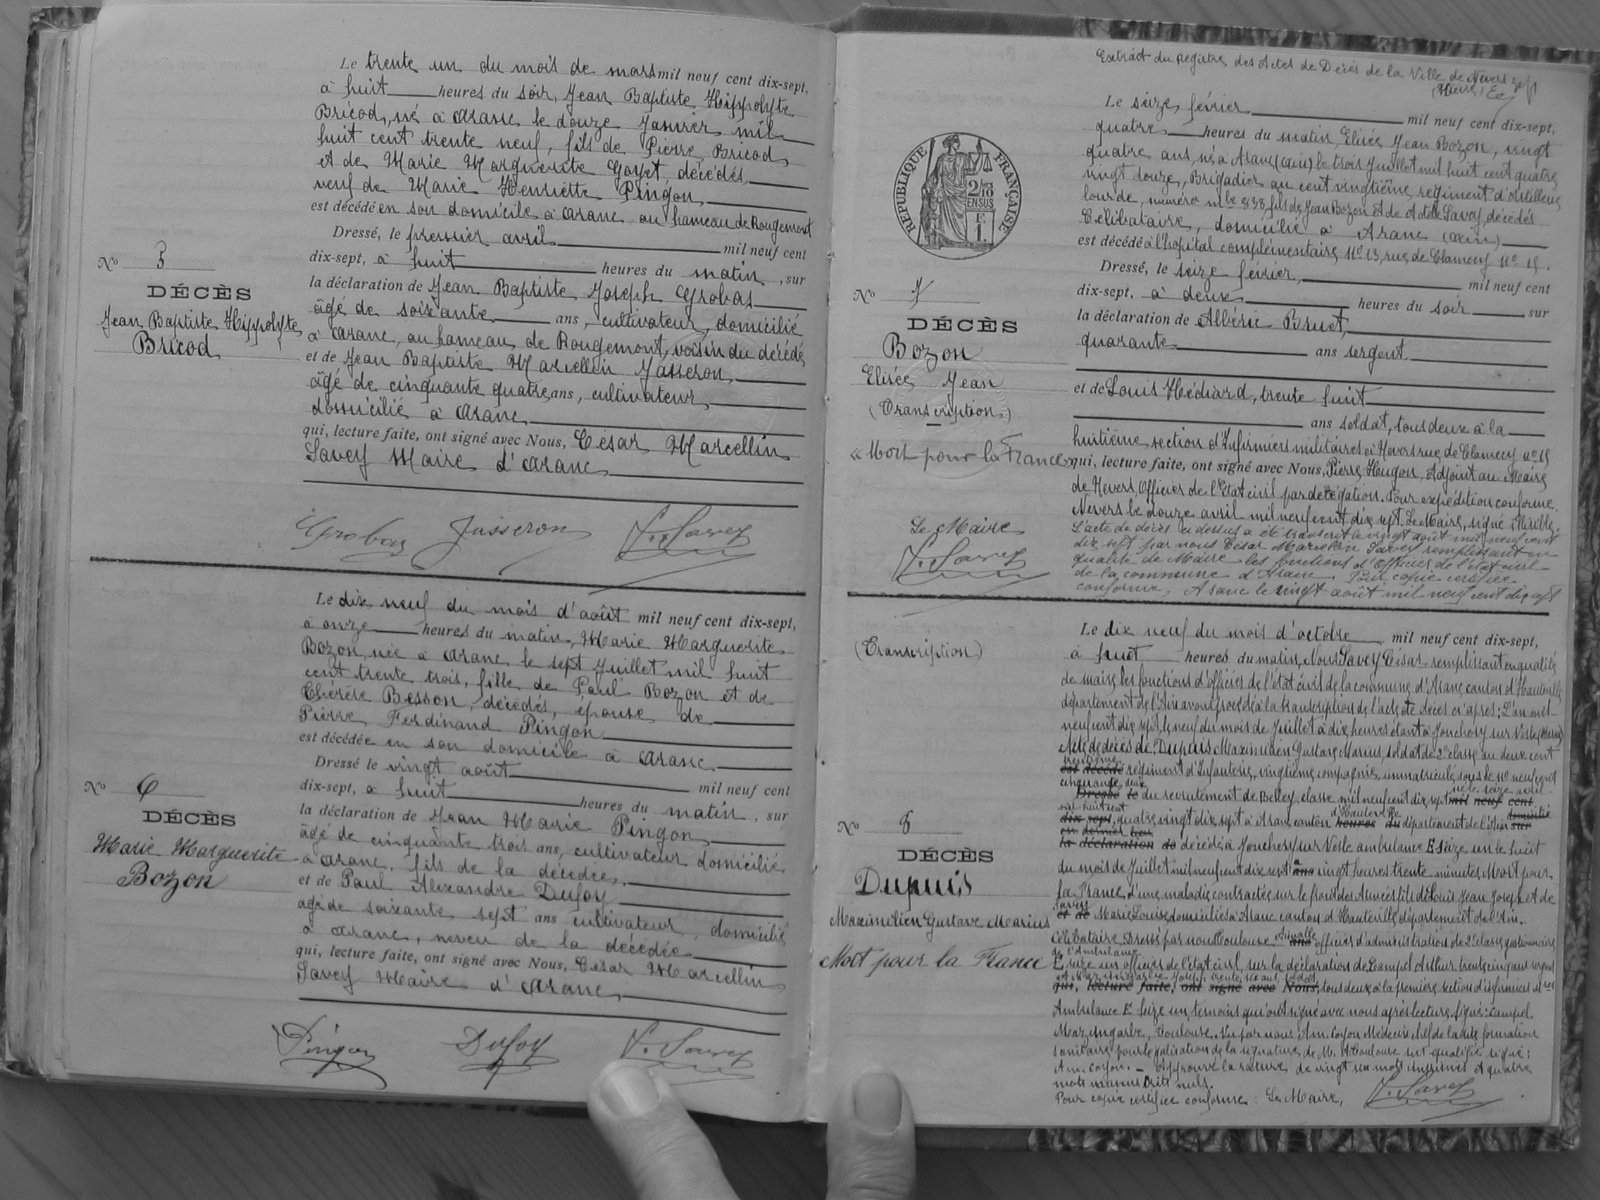 Le trente un du mois de mars mil neuf cent dix-sept,
à huit heures du soir, Jean Baptiste Hippolyte
Bricod, né à Aranc le douze Janvier mil
huit cent trente neuf, fils de Pierre Bricod
et de Marie Marguerite Goyet, décédés,
veuf de Marie Henriette Pingon,
est décédé en son domicile à Aranc au hameau de Rougemont
Dressé, le premier avril mil neuf cent
dix-sept, à huit heures du matin, sur
la déclaration de Jean Baptiste Joseph Grobas
âgé de soixante ans, cultivateur, domicilié
à Aranc, au hameau de Rougemont, voisin du décédé
et de Jean Baptiste Marcellin Jasseron,
âgé de cinquante quatre ans, cultivateur,
domicilié à Aranc
qui, lecture faite, ont signé avec Nous, César Marcellin
Savey Maire d'Aranc
Nº 5
DÉCÈS
Jean Baptiste Hippolyte
Bricod
Grobas Jasseron Savey
Le dix neuf du mois d'août mil neuf cent dix-sept,
à onze heures du matin, Marie Marguerite
Bozon, née à Aranc le sept Juillet mil huit
cent trente trois, fille de Paul Bozon et de
Thérèse Besson, décédés, épouse de
Pierre Ferdinand Pingon
est décédée en son domicile à Aranc
Dressé le vingt août mil neuf cent
dix-sept, à huit heures du matin, sur
la déclaration de Jean Marie Pingon,
âgé de cinquante trois ans, cultivateur domicilié
à Aranc, fils de la décédée,
et de Paul Alexandre Dufoy
âgé de soixante sept ans cultivateur, domicilié
à Aranc, neveu de la décédée
qui, lecture faite, ont signé avec Nous, César Marcellin
Savey Maire d'Aranc
Nº 6
DÉCÈS
Marie Marguerite
Bozon
Pingon Dufoy Savey
Extrait du Registre des Actes de Décès de la Ville de Nevers
Le seize février mil neuf cent dix-sept,
quatre heures du matin, Elisée Jean Bozon, vingt
quatre ans, né à Aranc (Ain) le trois Juillet mil huit cent quatre
vingt douze, Brigadier au cent vingtième régiment d'artillerie
lourde, numéro mle 838, fils de Jean Bozon et de Savey, décédés
Célibataire, domicilié à Aranc (Ain)
est décédé à l'hôpital complémentaire Nº 13, rue de Clamecy Nº 15.
Dressé, le seize février, mil neuf cent
dix-sept, à deux heures du soir sur
la déclaration de Albéric Bruet,
quarante ans sergent
et de Louis Hédiard, trente huit
ans soldat, tous deux à la
huitième section d'Infirmiers militaires à Nevers rue de Clamecy nº 15
qui, lecture faite, ont signé avec Nous, Pierre Hugon, Adjoint au Maire
de Nevers, Officier de l'Etat civil par délégation. Pour expédition conforme.
Nevers le douze avril mil neuf cent dix sept. Le Maire, signé
L'acte de décès ci dessus a été transcrit le vingt août mil neuf cent
dix sept par nous César Marcellin Savey remplissant en
qualité de Maire les fonctions d'Officier de l'état civil
de la commune d'Aranc. Pour copie certifiée
conforme, Aranc le vingt août mil neuf cent dix sept
RÉPUBLIQUE FRANÇAISE
Nº 7
DÉCÈS
Bozon
Elisée Jean
(Transcription)
« Mort pour la France
Le Maire
Savey
(Transcription)
Le dix neuf du mois d'octobre mil neuf cent dix-sept,
à huit heures du matin, Nous Savey César remplissant en qualité
de maire les fonctions d'officier de l'état civil de la commune d'Aranc canton d'Hauteville
département de l'Ain avons procédé à la transcription de l'acte de décès ci après : L'an mil
neuf cent dix sept, le neuf du mois de Juillet à dix heures étant à Jonchery sur Vesle (Marne)
Acte de décès de Dupuis Maximilien Gustave Marius, soldat de 2e classe au deux cent
régiment d'Infanterie, vingtième compagnie, immatriculé sous le nº neuf cent
cinquante deux
du recrutement de Belley, classe mil neuf cent dix sept
quatre vingt dix sept à Aranc canton d'Hauteville département de l'Ain
décédé à Jonchery sur Vesle ambulance E seize un le huit
du mois de Juillet mil neuf cent dix sept à vingt heures trente minutes Mort pour
la France, d'une maladie contractée sur le front des Armées fils de Louis Jean Joseph et de
Savey Marie Louise domiciliés à Aranc canton d'Hauteville département de l'Ain.
Célibataire. Dressé par nous Toulouse officier d'administration de 2e classe gestionnaire
de l'ambulance
E seize un officier de l'état civil, sur la déclaration de Arthur trente cinq ans sergent
tous deux à la première section d'infirmiers
Ambulance E Seize un témoins qui ont signé avec nous après lecture, signé :
Toulouse. Vu par nous Am. Coyon Médecin chef de la dite formation
sanitaire pour légalisation de la signature de M. Toulouse sus qualifié signé :
Am. Coyon. – Approuvé la rature de vingt un mots imprimés et quatre
mots manuscrits nuls.
Pour copie certifiée conforme : Le Maire, Savey
Nº 8
DÉCÈS
Dupuis
Maximilien Gustave Marius
Mort pour la France